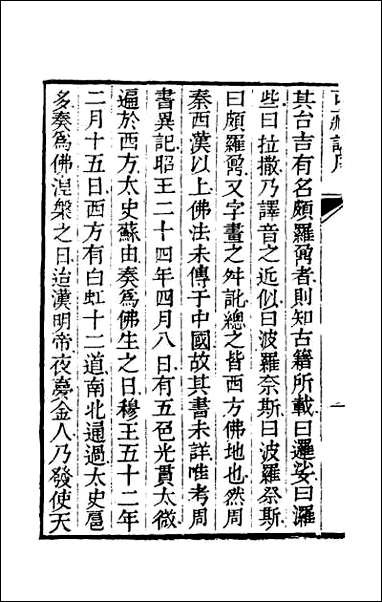 其台吉有名頗羅鼐者則知古籍所載曰邏娑曰邏
些曰拉撒乃譯音之近似曰波羅奈斯曰波羅祭斯
曰頗羅鼐又字畫之舛訛總之皆西方佛地也然周
秦西漢以上佛法未傳于中國故其書未詳唯考周
書異記昭王二十四年四月八日有五色光貫太微
遍於西方太史蘇由奏爲佛生之日穆王五十二年
二月十五日西方有白虹十二道南北通過太史扈
多奏爲佛湼槃之日迨漢明帝夜夢金人乃發使天